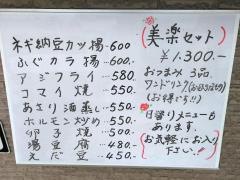 ネギ納豆カツ揚 600
ふぐカラ揚 …600
アジフライ …580
コマイ焼 …550
あさり酒蒸し …550
ホルモン炒め …550
卵子焼 …500
湯豆腐 …480
えだ豆 …450
美楽セット
¥1,300.—
おつまみ3品
ワンドリンク(お得です!!)
日替りメニューも
あります。
お気軽にお入り
下さい!